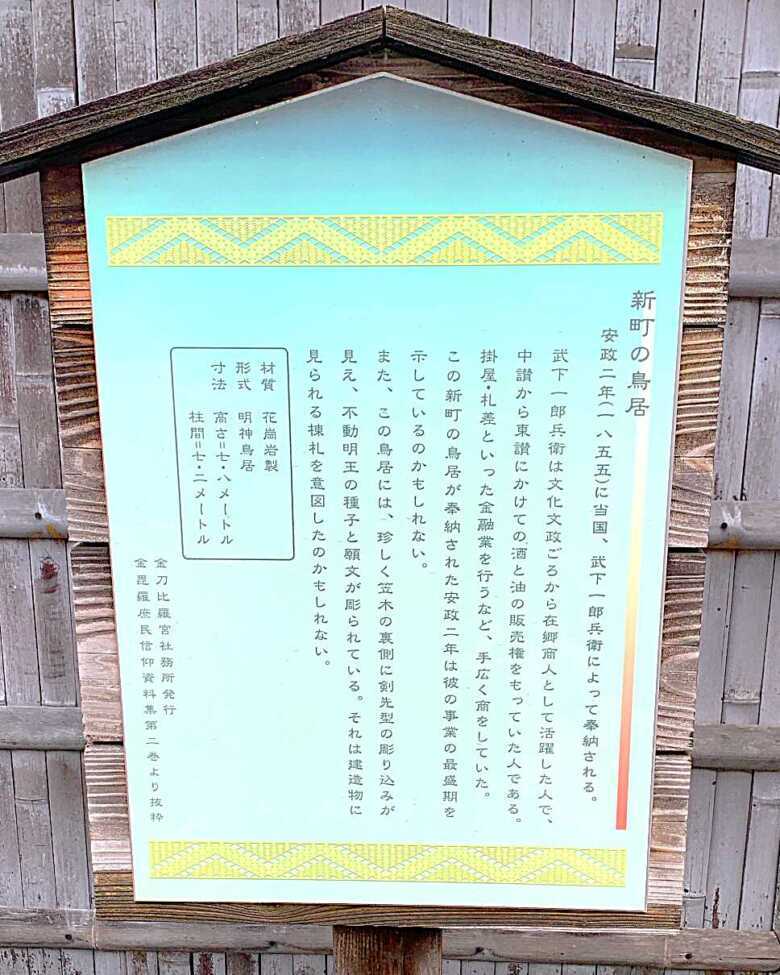 新町の鳥居
安政二年(一八五五)に当国、武下一郎兵衛によって奉納される。
武下一郎兵衛は文化文政ごろから在郷商人として活躍した人で、
中讃から東讃にかけての酒と油の販売権をもっていた人である。
掛屋・札差といった金融業を行うなど、手広く商をしていた。
この新町の鳥居が奉納された安政二年は彼の事業の最盛期を
示しているのかもしれない。
また、この鳥居には、珍しく笠木の裏側に剣先型の彫り込みが
見え、不動明王の種子と願文が彫られている。それは建造物に
見られる棟札を意図したのかもしれない。
材質 花崗岩製
形式 明神鳥居
寸法 高さ=七・八メートル
柱間=七・二メートル
金刀比羅宮社務所発行
金毘羅庶民信仰資料集第二巻より抜粋